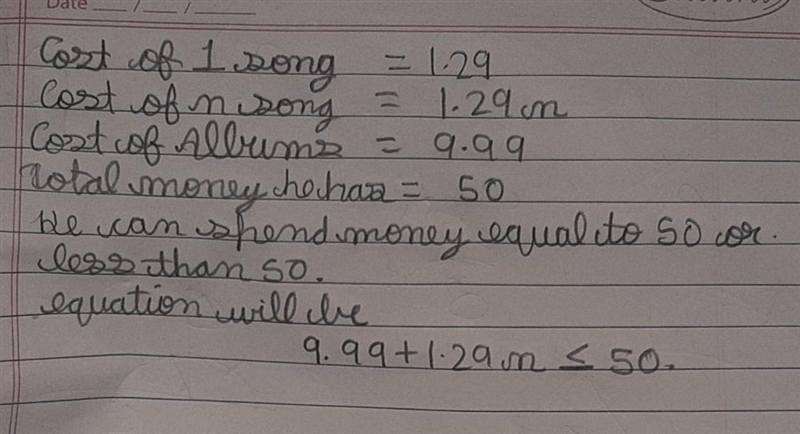 Date / /
Cost of 1 song = 1.29
Cost of n song = 1.29n
Cost of Albums = 9.99
Total money he has = 50
He can spend money equal to 50 or
less than 50.
equation will be
9.99+1.29n ≤ 50.